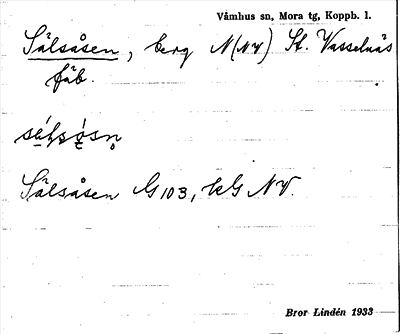 Våmhus sn, Mora tg, Koppb. l.
Sälsåsen, berg N(NV) St. Vasselnäs
fäb.
Sälsåsen G103, kG NV.
Bror Lindén 1933